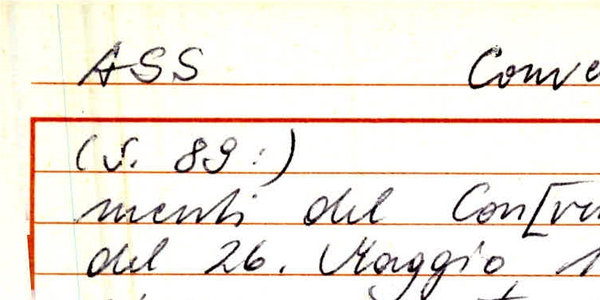 ASS Conve
(S. 89:)
menti del Con[ve
del 26. Maggio 1